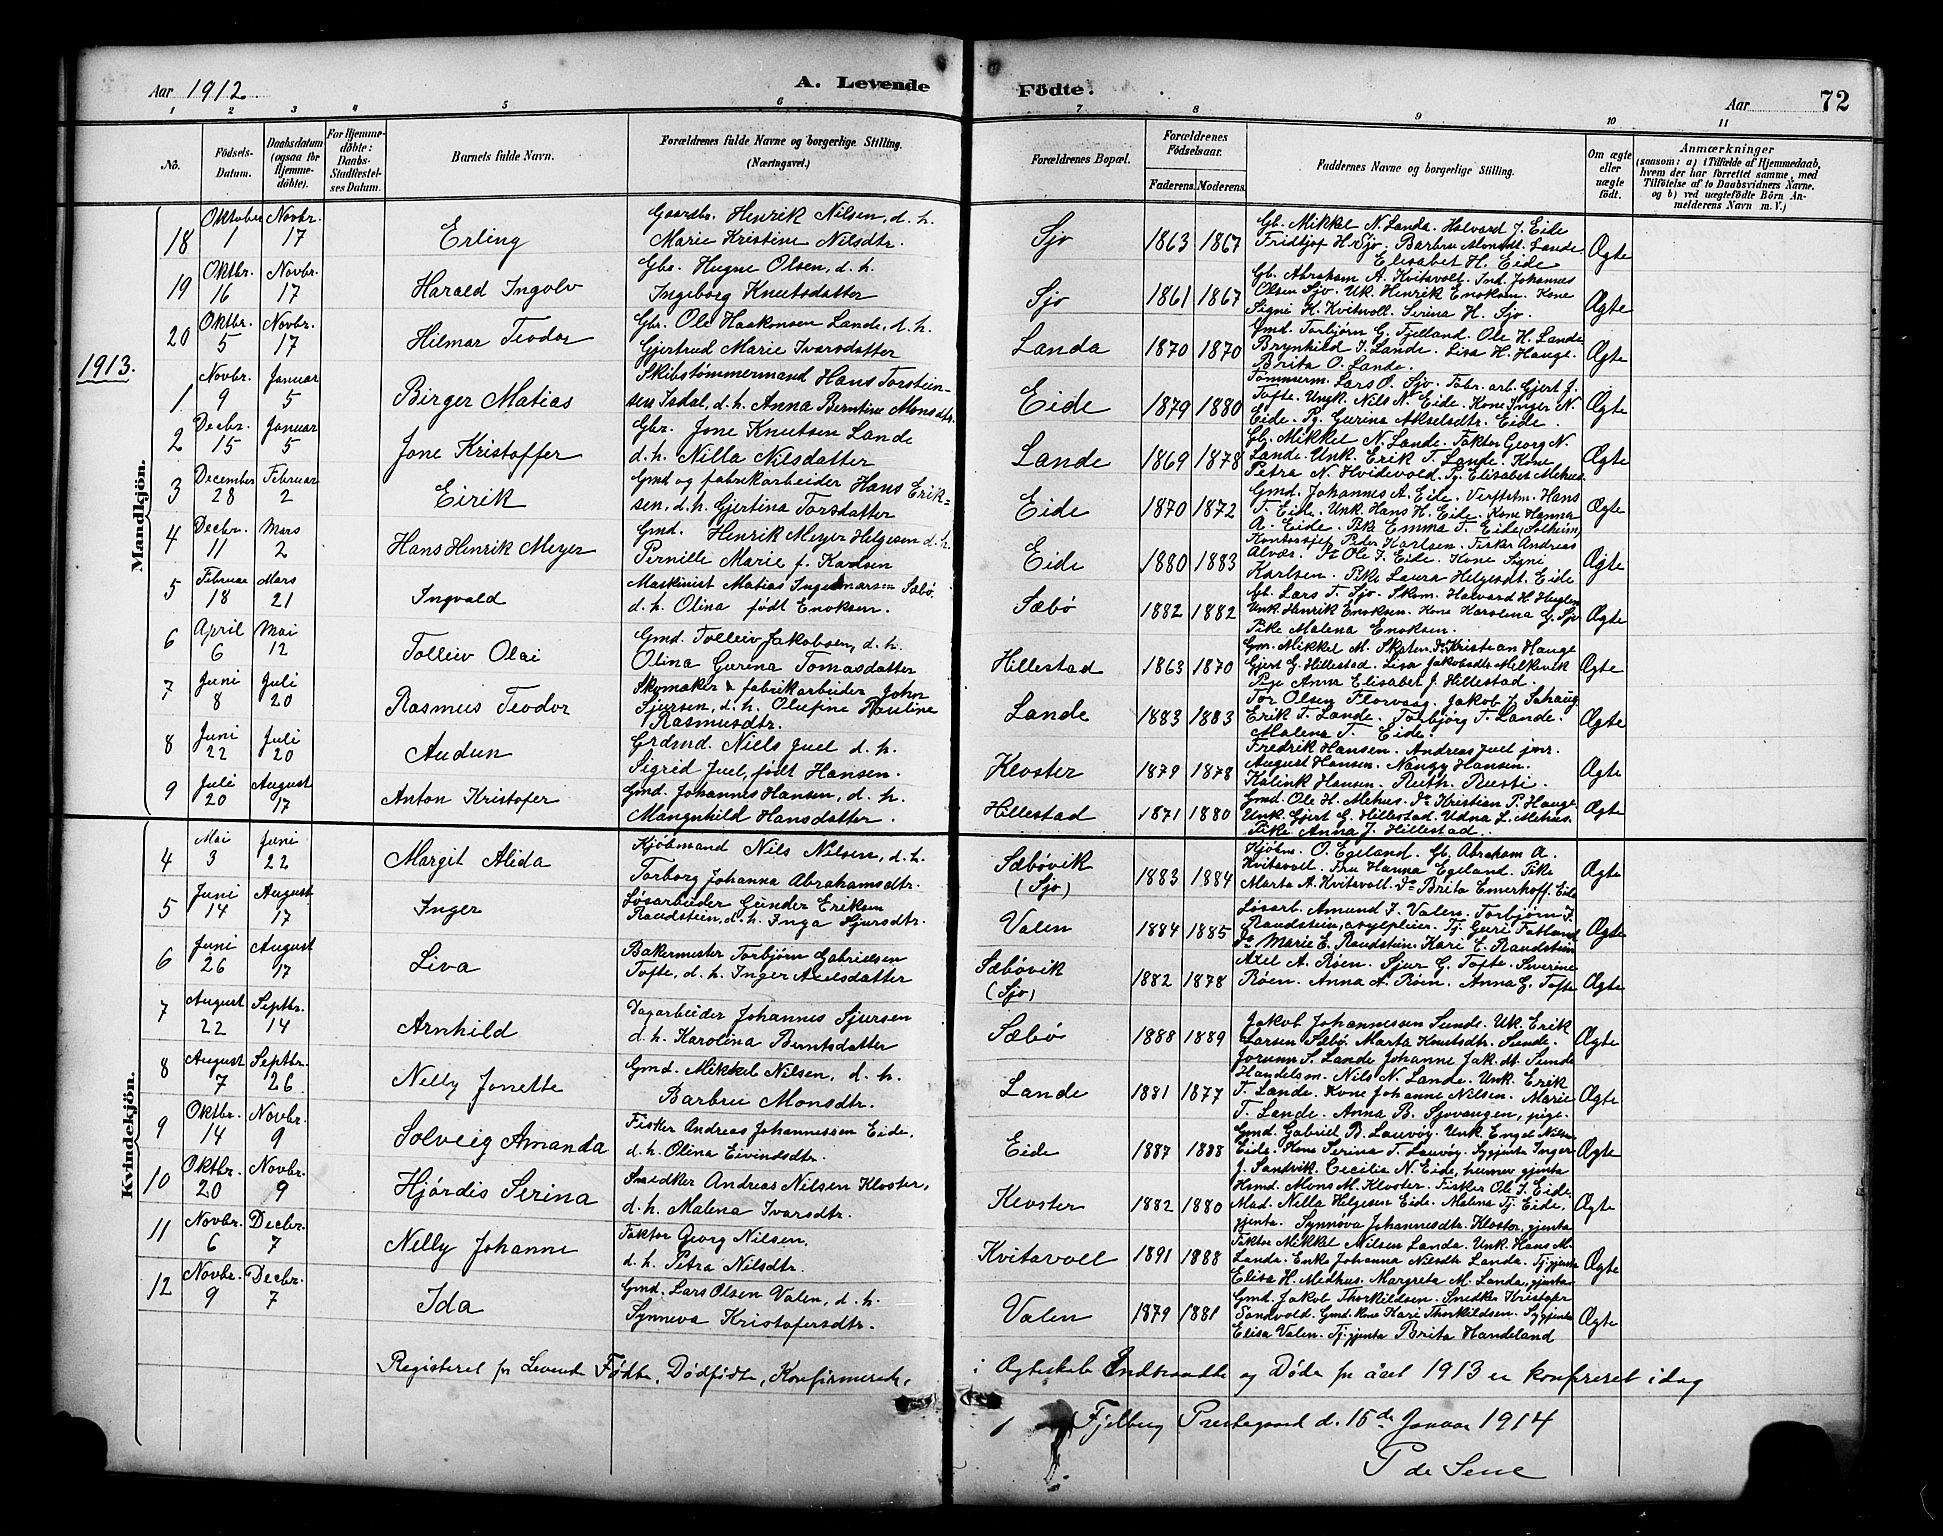 Aar 1912
A. Levende Födte.
Aar
72
1 2 3 4 5 6 7 8 9 10 11
No.
Födsels-Datum.
Daabsdatum (ogsaa for Hjemme-döbte).
For Hjemme-döbte: Daabs-Stadfæstel-ses Datum.
Barnets fulde Navn.
Forældrenes fulde Navne og borgerlige Stilling. (Næringsvei.)
Forældrenes Bopæl.
Forældrenes Födselsaar.
Faderens. Moderens.
Faddernes Navne og borgerlige Stilling.
Om ægte eller uægte födt.
Anmærkninger
(saasom: a) i Tilfælde af Hjemmedaab, hvem der har forrettet samme, med Tilföielse af to Daabsvidners Navne, og b) ved uægtefödte Börn An-melderens Navn m. V.)
Mandkjön.
18 Oktober 1 Novbr. 17 Erling Gaardbr. Henrik Nilsen, d. h. Marie Kristine Nilsdtr. Sjo 1863 1867 Gb. Mikkel N. Landa. Halvard J. Eide Fridtjof H. Sjo. Barbru Monsdt. Lande Elisabet H. Eide Ægte
19 Oktbr. 16 Novbr. 17 Harald Ingolv Gbr. Hugne Olsen, d. h. Ingeborg Knutsdatter Sjo 1861 1867 Gb. Abraham A. Kvitavoll. Ind. Johannes Olsen Sjo. Uk. Henrik Enoksen. Kone Signe K. Kvitavoll. Serina H. Sjo. Ægte
20 Oktbr. 5 Novbr. 17 Hilmar Teodor Gbr. Ole Haakonsen Lande, d. h. Gjertrud Marie Ivarsdatter Landa 1870 1870 Gmd. Torbjørn G. Fjelland. Ole H. Lande Brynhild J. Lande. Lisa H. Hauge. Brita O. Lande. Ægte
1913.
1 Novbr. 9 Januar 5 Birger Matias Skibstømmermand Hans Torstein-sen Isdal, d. h. Anna Berntine Monsdtr. Eide 1879 1880 Tømmerm. Lars O. Sjo. Fabr. arb. Gjert J. Tofte. Ungk. Nils N. Eide. Kone Inger N. Eide. Pg. Gurina Akselsdtr. Eide. Ægte
2 Decbr. 15 Januar 5 Jone Kristoffer Gbr. Jone Knutsen Lande d. h. Nilla Nilsdatter Lande 1869 1878 Gb. Mikkel N. Lande. Faktor Georg N. Lande. Unk. Erik T. Lande. Kone Petra N. Hvidevold. Pg. Elisabet Mehus Ægte
3 December 28 Februar 2 Eirik Gmd og fabrikarbeider Hans Erik-sen, d. h. Gjertina Torsdatter Eide 1870 1872 Gmd. Johannes A. Eide. Verftstm. Hans T. Eide. Unk Hans H. Eide. Kone Hanna A. Eide. Pk Emma T. Eide (Solheim) Ægte
4 Decbr. 11 Mars 2 Hans Henrik Meyer Gmd. Henrik Meyer Helgesen d. h. Pernille Marie f. Karlsen Eide 1880 1883 Kontorsjef Peder Karlsen. Fisker Andreas Alvæs. Do Ole J. Eide. Kone Signe Karlsen. Pike Laura Helgesdt. Eide Ægte
5 Februar 18 Mars 21 Ingvald Maskinist Matias Ingemarsen Sæbø, d. h. Olina født Enoksen. Sæbö 1882 1882 Gb. Lars T. Sjo. Skom. Halvard H. Huglen Unk. Henrik Enoksen. Kone Karolina G. Sjo Pike Malena Enoksen. Ægte
6 April 6 Mai 12 Tolleiv Olai Gmd. Tolleiv Jakobsen, d. h. Olina Gurina Tomasdatter Hillestad 1863 1870 Gm. Mikkel M. Skaten. Do Kristian Hauge Gjert G. Hillestad. Lisa Jakobsdtr Melkevik Pige Anna Elisabet J. Hillestad. Ægte
7 Juni 8 Juli 20 Rasmus Teodor Skomaker & fabrikarbeider John Sjursen, d. h. Olufine Pauline Rasmusdtr. Lande 1883 1883 Tor Olsen Florvaag. Jakob J. Sahaug Erik T. Lande. Torbjörg T. Lande. Malena T. Eide. Ægte
8 Juni 22 Juli 20 Audun Grdmd. Niels Juel d. h. Sigrid Juel, født Hansen. Kloster 1879 1878 Fredrik Hansen. Andreas Juel jnr. August Hansen. Nanzy Hansen. Kalink Hansen. Ruth Rusti. Ægte
9 Juli 20 August 17 Anton Kristofer Gmd. Johannes Hansen, d. h. Mangnhild Hansdatter. Hillestad 1871 1880 Gmd. Ole H. Mehus. Do Kristian P. Hauge Unk. Gjert G. Hillestad. Udna L. Mehus. Pike Anna J. Hillestad. Ægte
Kvindekjön.
4 Mai 3 Juni 22 Margit Alida Kjöbmand Nils Nilsen, d. h. Torborg Johanna Abrahamsdtr. Sæbövik (Sjo) 1883 1884 Kjöbm. O. Egeland. Gb. Abraham A. Kvitavoll. Fru Hanna Egeland. Pike Marta A. Kvitavoll. Do Brita Emerhoff. Eide Ægte
5 Juni 14 August 17 Inger Løsarbeider Gunder Eriksen Raudstein, d. h. Inga Sjursdtr. Valen 1884 1885 Løsarb. Amund J. Valen. Torbjörn J. Raudstein, asylpleier. Tj. Guri Fatland Do Marie E. Raudstein. Kari E. Raudstein Ægte
6 Juni 26 August 17 Liva Bakermester Torbjörn Gabrielsen Tofte, d. h. Inger Axelsdatter Sæbövik (Sjo) 1882 1878 Axel A. Røen. Sjur G. Tofte. Severine Røen. Anna A. Røen. Anna G. Tofte Ægte
7 August 22 Septbr. 14 Arnhild Dagarbeider Johannes Sjursen d. h. Karolina Berntsdatter Sæbö 1888 1889 Jakob Johannessen Sunde. Uk. Erik Larsen Sæbø. Marta Knutsdtr. Sunde. Jorunn S. Lande Johanne Jak.dt. Sunde Ægte
8 August 7 Septbr. 26 Nelly Jonette Gmd. Mikkel Nilsen, d. h. Barbru Monsdtr. Lande 1881 1877 Handelsm. Nils N. Lande. Unk. Erik T. Lande. Kone Johanne Nilsen. Marie T. Lande. Anna B. Sjovangen, pige. Ægte
9 Oktbr. 14 Novbr. 9 Solveig Amanda Fisker Andreas Johannessen Eide, d. h. Olina Eivindsdtr. Eide 1887 1888 Gmd. Gabriel B. Lauvøy. Unk. Engel Nilsen Eide. Kone Serina T. Lauvøy. Sygjenta Inger J. Sandvik. Cecilia N. Eide, heimev. gjenta Ægte
10 Oktbr. 20 Novbr. 9 Hjördis Serina Snedker Andreas Nilsen Kloster, d. h. Malena Ivarsdtr. Kloster 1882 1880 Hsmd. Mons M. Kloster. Fisker Ole J. Eide. Mad. Nilla Helgesen Eide. Malena Tj. Eide, gjenta. Synnøva Johannesdtr. Kloster, gjenta Ægte
11 Novbr. 6 Decbr. 7 Nelly Johanne Faktor Georg Nilsen, d. h. Petra Nilsdtr. Kvitavoll 1891 1888 Faktor Mikkel Nilsen Landa. Unk. Hans M. Landa. Enke Johanna Nilsdtr Landa. Tj.gjenta Elisa H. Medhus. Margreta M. Landa, gjenta Ægte
12 Novbr. 9 Decbr. 7 Ida Gmd. Lars Olsen Valen, d. h. Synneva Kristofersdtr. Valen 1879 1881 Gmd. Jakob Thorkildsen. Snedker Kristofer Sandvold. Gmd. kone Kari Thorkildsen. Sygjenta Elisa Valen. Tj.gjenta Brita Handeland Ægte
Registeret for Levende Fødte, Dödfödte, Konfirmerede, i Ægteskab Indtraadte og Döde for året 1913 er konfereret idag
Fjelberg Prestegaard d. 15de Januar 1914
P de Seue